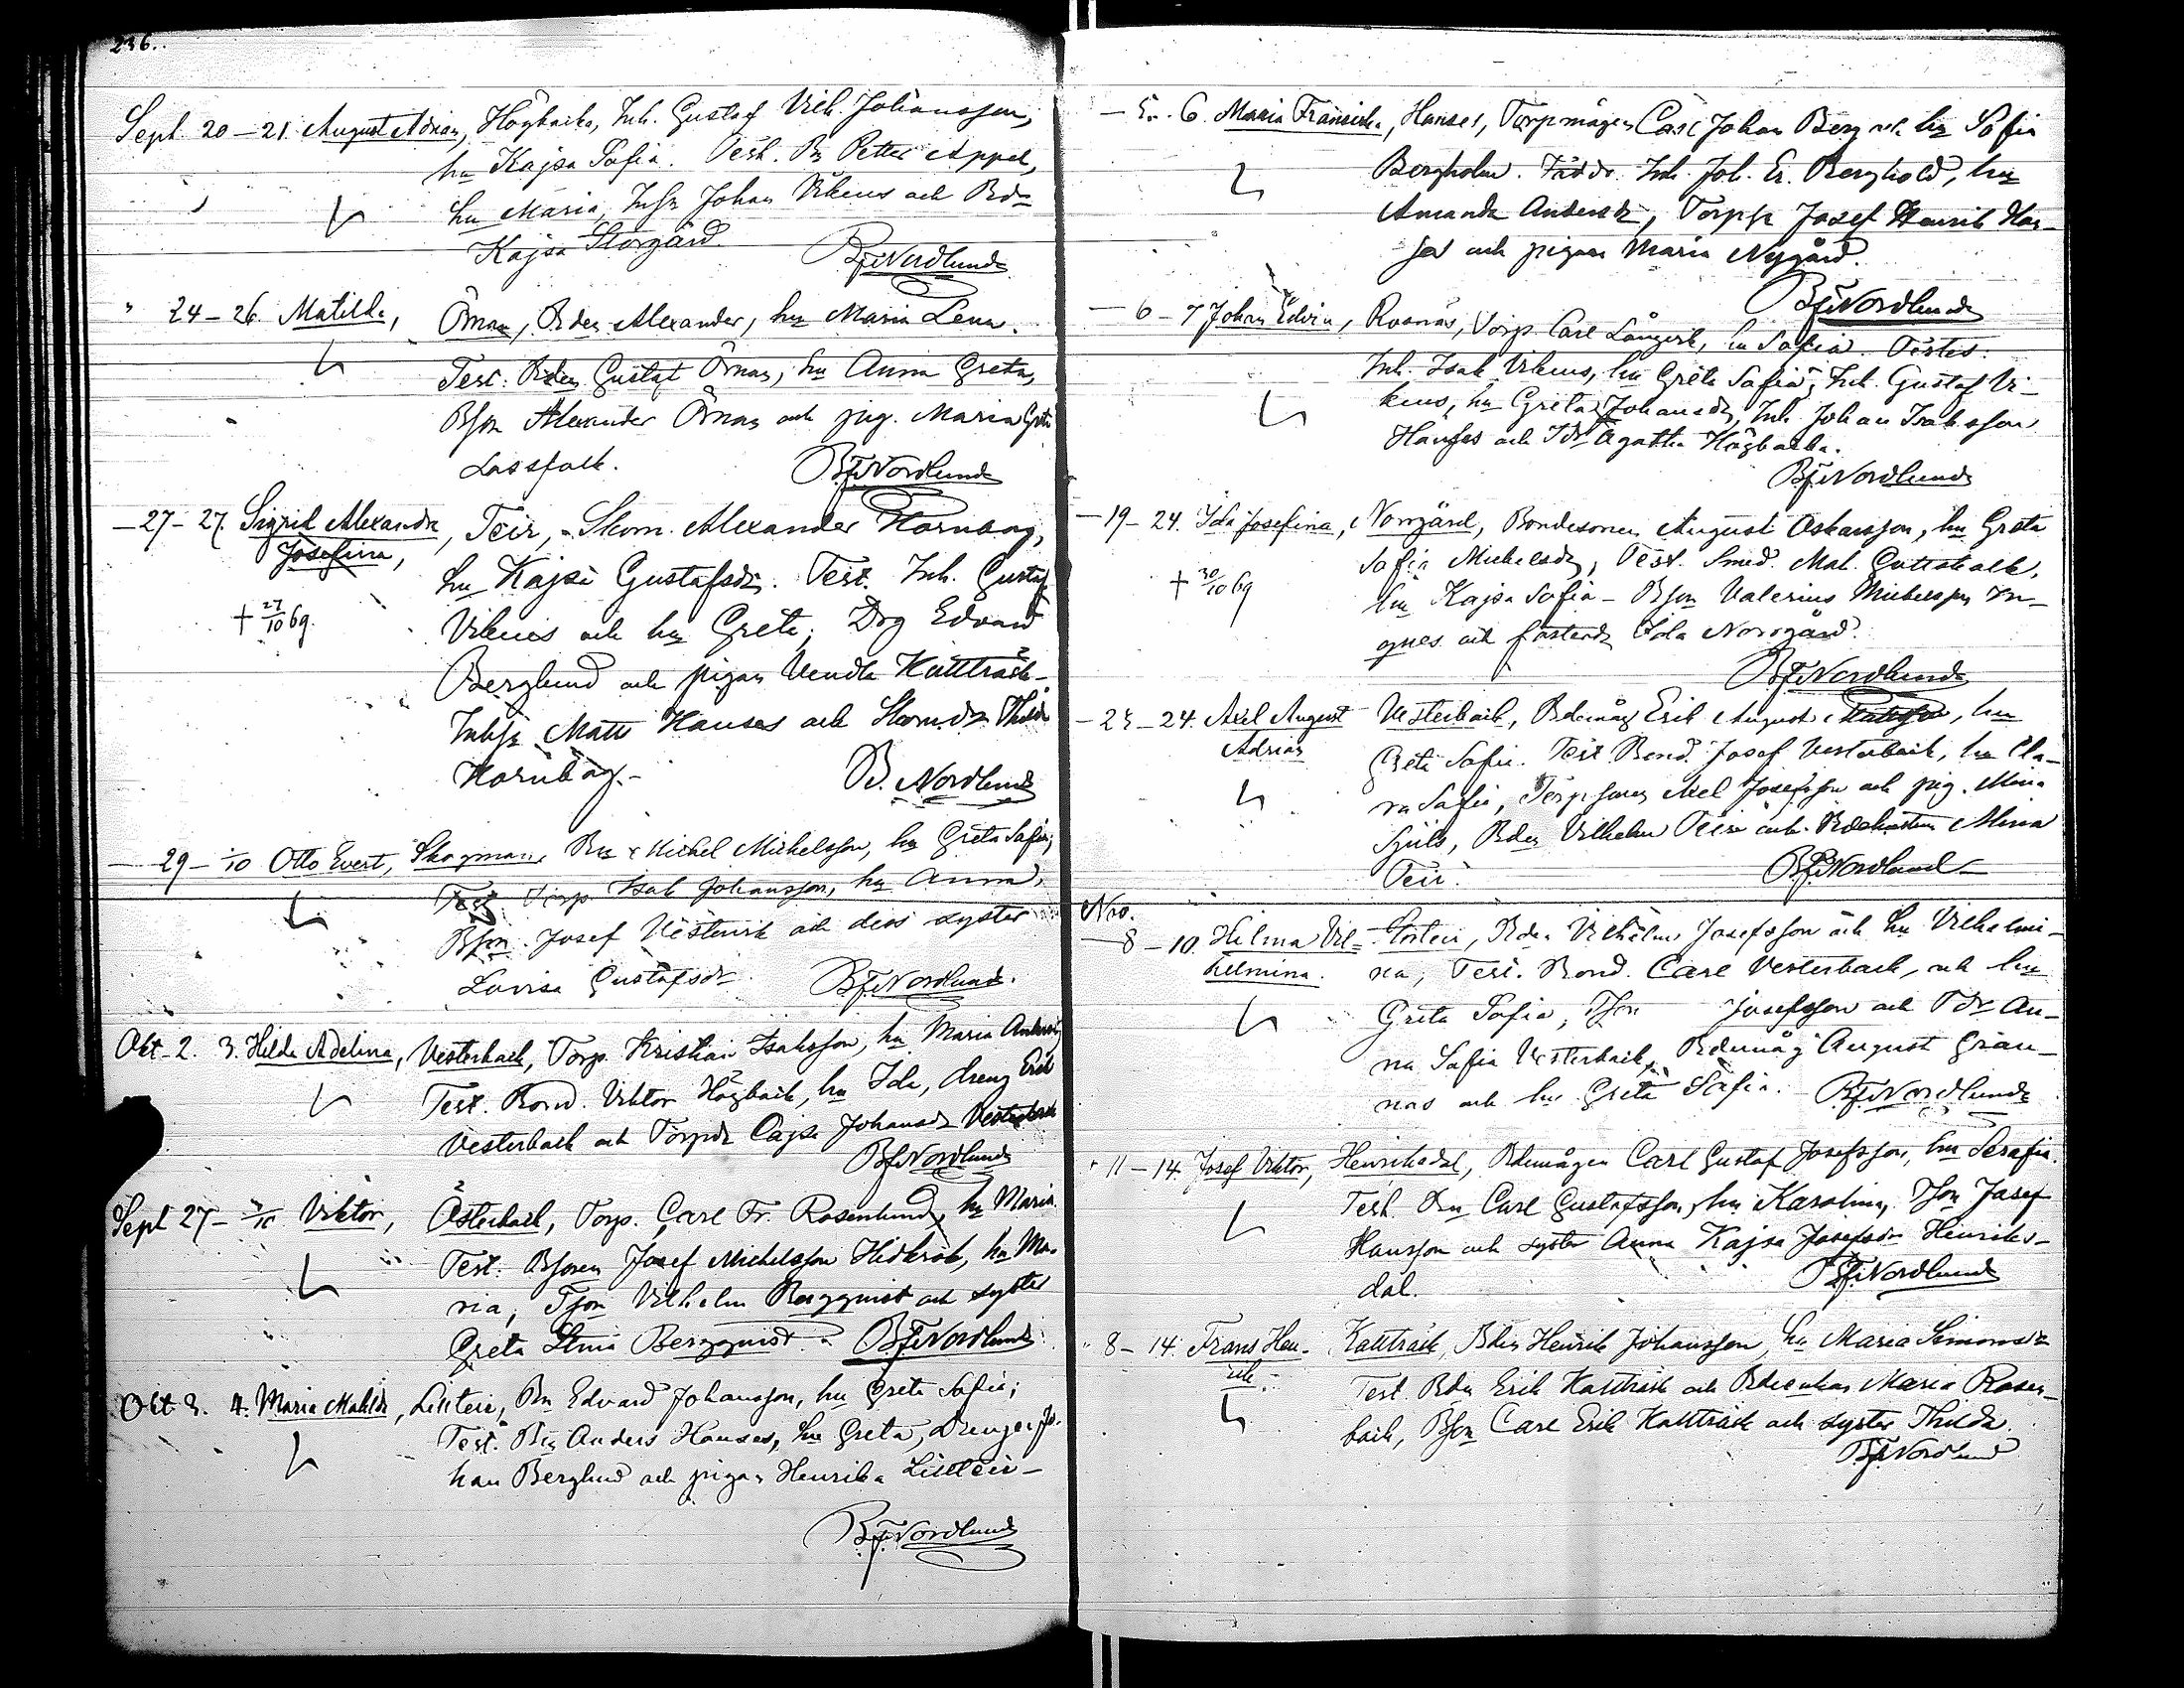 236.
Sept. 20-21. August Adrian, Högbacka, Inh. Gustaf Vilh. Johansson,
hu Kajsa Sofia. Test. Bn Petter Appel,
hu Maria, Inhsn Johan Vikeus och Bd
Kajsa Storgård.
BfNordlund
" 24-26. Matilda, Örnas, Bden Alexander, hu Maria Lena.
Test: Bden Gustaf Örnas, hu Anna Greta,
Bson Alexander Örnas och pig. Maria Greta
Lassfolk.
BfNordlund
-27-27. Sigrid Alexandra, Teir, Skom. Alexander Hornborg,
Josefina,
hu Kajsa Gustafsdr. Test. Inh. Gustaf
† 27/10 69.
Vikeus och hu Greta; Drg Edvard
Berglund och pigan Vendla Kattträsk
Inhsn Matts Hanses och Skomdr Thilda
Hornborg.-
B. Nordlund
- 29-/10 Otto Evert, Skogman, Bn Michel Michelsson, hu Greta Sofia;
Test Torp. Isak Johansson, hu Anna,
Bson. Josef Vestervik och dess syster
Lovisa Gustafsdr
BfNordlund.
Okt. 2. 3. Hilda Adelina, Vesterback, Torp. Kristian Isaksson, hu Maria
Test. Bond. Viktor Högback, hu Ida, dreng Erik
Vesterback och Torpdr Cajsa Johansdr Vesterback
BfNordlund
Sept 27- /10 Viktor, Österback, Torp. Carl Fr. Rosenlund, hu Maria.
Test: Bsonen Josef Michelsson Hidkrok, hu Ma-
ria, Tson Vilhelm Bergqvist och syster
Greta Stina Bergqvist.
BfNordlund
Okt 3. 4. Maria Matilda, Lillteir, Bn Edvard Johansson, hu Greta Sofia;
Test. Bn Anders Hanses, hu Greta, Drengen Jo-
han Berglund och pigan Henrika Lillteir-
BfNordlund
- 5.. 6. Maria Fransiska, Hanses, Torpmågen Carl Johan Berg och hu Sofia
Bergholm. Inh. Joh. Er. Berghold, hu
Amanda Andersdr, Torpsn Josef Henrik Han-
ses och pigan Maria Nygård.
BfNordlund
- 6-7 Johan Edvin, Rosnäs, Torp. Carl Långvik, hu Sofia. Testes:
Inh. Isak Vikeus, hu Greta Sofia, Inh. Gustaf Vi-
keus, hu Greta Johansdr, Inh. Johan Isaksson
Hanses och Tdr Agatha Högbacka.
BfNordlund
- 19-24. Ida Josefina, Norrgård, Bondesonen August Oskarsson, hu Greta
Sofia Michelsdr, Test. Smed. Mat. Guttskalk,
† 30/10 69
hu Kajsa Sofia - Bson Valerius Michelsson In-
gnes och fosterdr Ida Norrgård.
BfNordlund
- 23-24. Axel August Vesterback, Bdemåg Erik August Mattsson, hu
Adrian
Greta Sofia. Test Bond. Josef Vesterback, hu Cla-
ra Sofia, Torpsonen Axel Josefsson och pig. Mina
Sjuls, Bden Vilhelm Teir och Mina
Teir.
BfNordlund
Nov.
- 8-10. Hilma Vil= Storteir, Bden Vilhelm Josefsson och hu Vilhelmi-
helmina. na, Test. Bond. Carl Vesterback, och hu
Greta Sofia; Tson Josefsson och Tdr An-
na Sofia Vesterback, Bdemåg August Grän-
nas och hu Greta Sofia.
BfNordlund
" 11-14. Josef Viktor, Henriksdal, Bdemågen Carl Gustaf Josefsson, hu Serafia.
Test. Bn Carl Gustafsson, hu Karolina, Tson Josef
Hansson och syster Anna Kajsa Josefsdr Henriks-
dal.
BfNordlund
" 8-14. Frans Hen- Kattträsk, Bden Henrik Johansson, hu Maria Simonsdr
rik.
Test. Bden Erik Kattträsk och Bdeenkan Maria Rosen-
back, Bson Carl Erik Kattträsk och syster Thilda.
BfNordlund